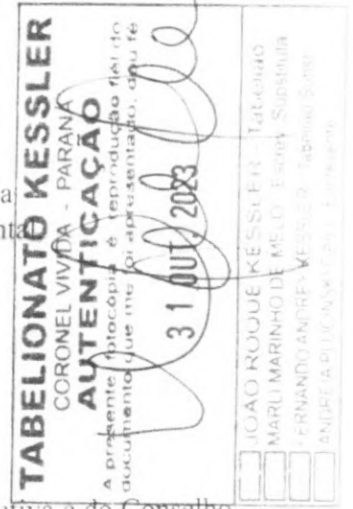 TABELIONATO KESSLER
CORONEL VIVIDA - PARANÁ
AUTENTICAÇÃO
A presente fotocópia é reprodução fiel do
documento que me foi apresentado, dou fé
31 OUT. 2023
JOÃO ROQUE KESSLER - Tabelião
MARLI MARINHO DE MELO - Escrev. Substituta
FERNANDO ANDREY KESSLER - Tabelião Subst.
a
nta
e do Conselho